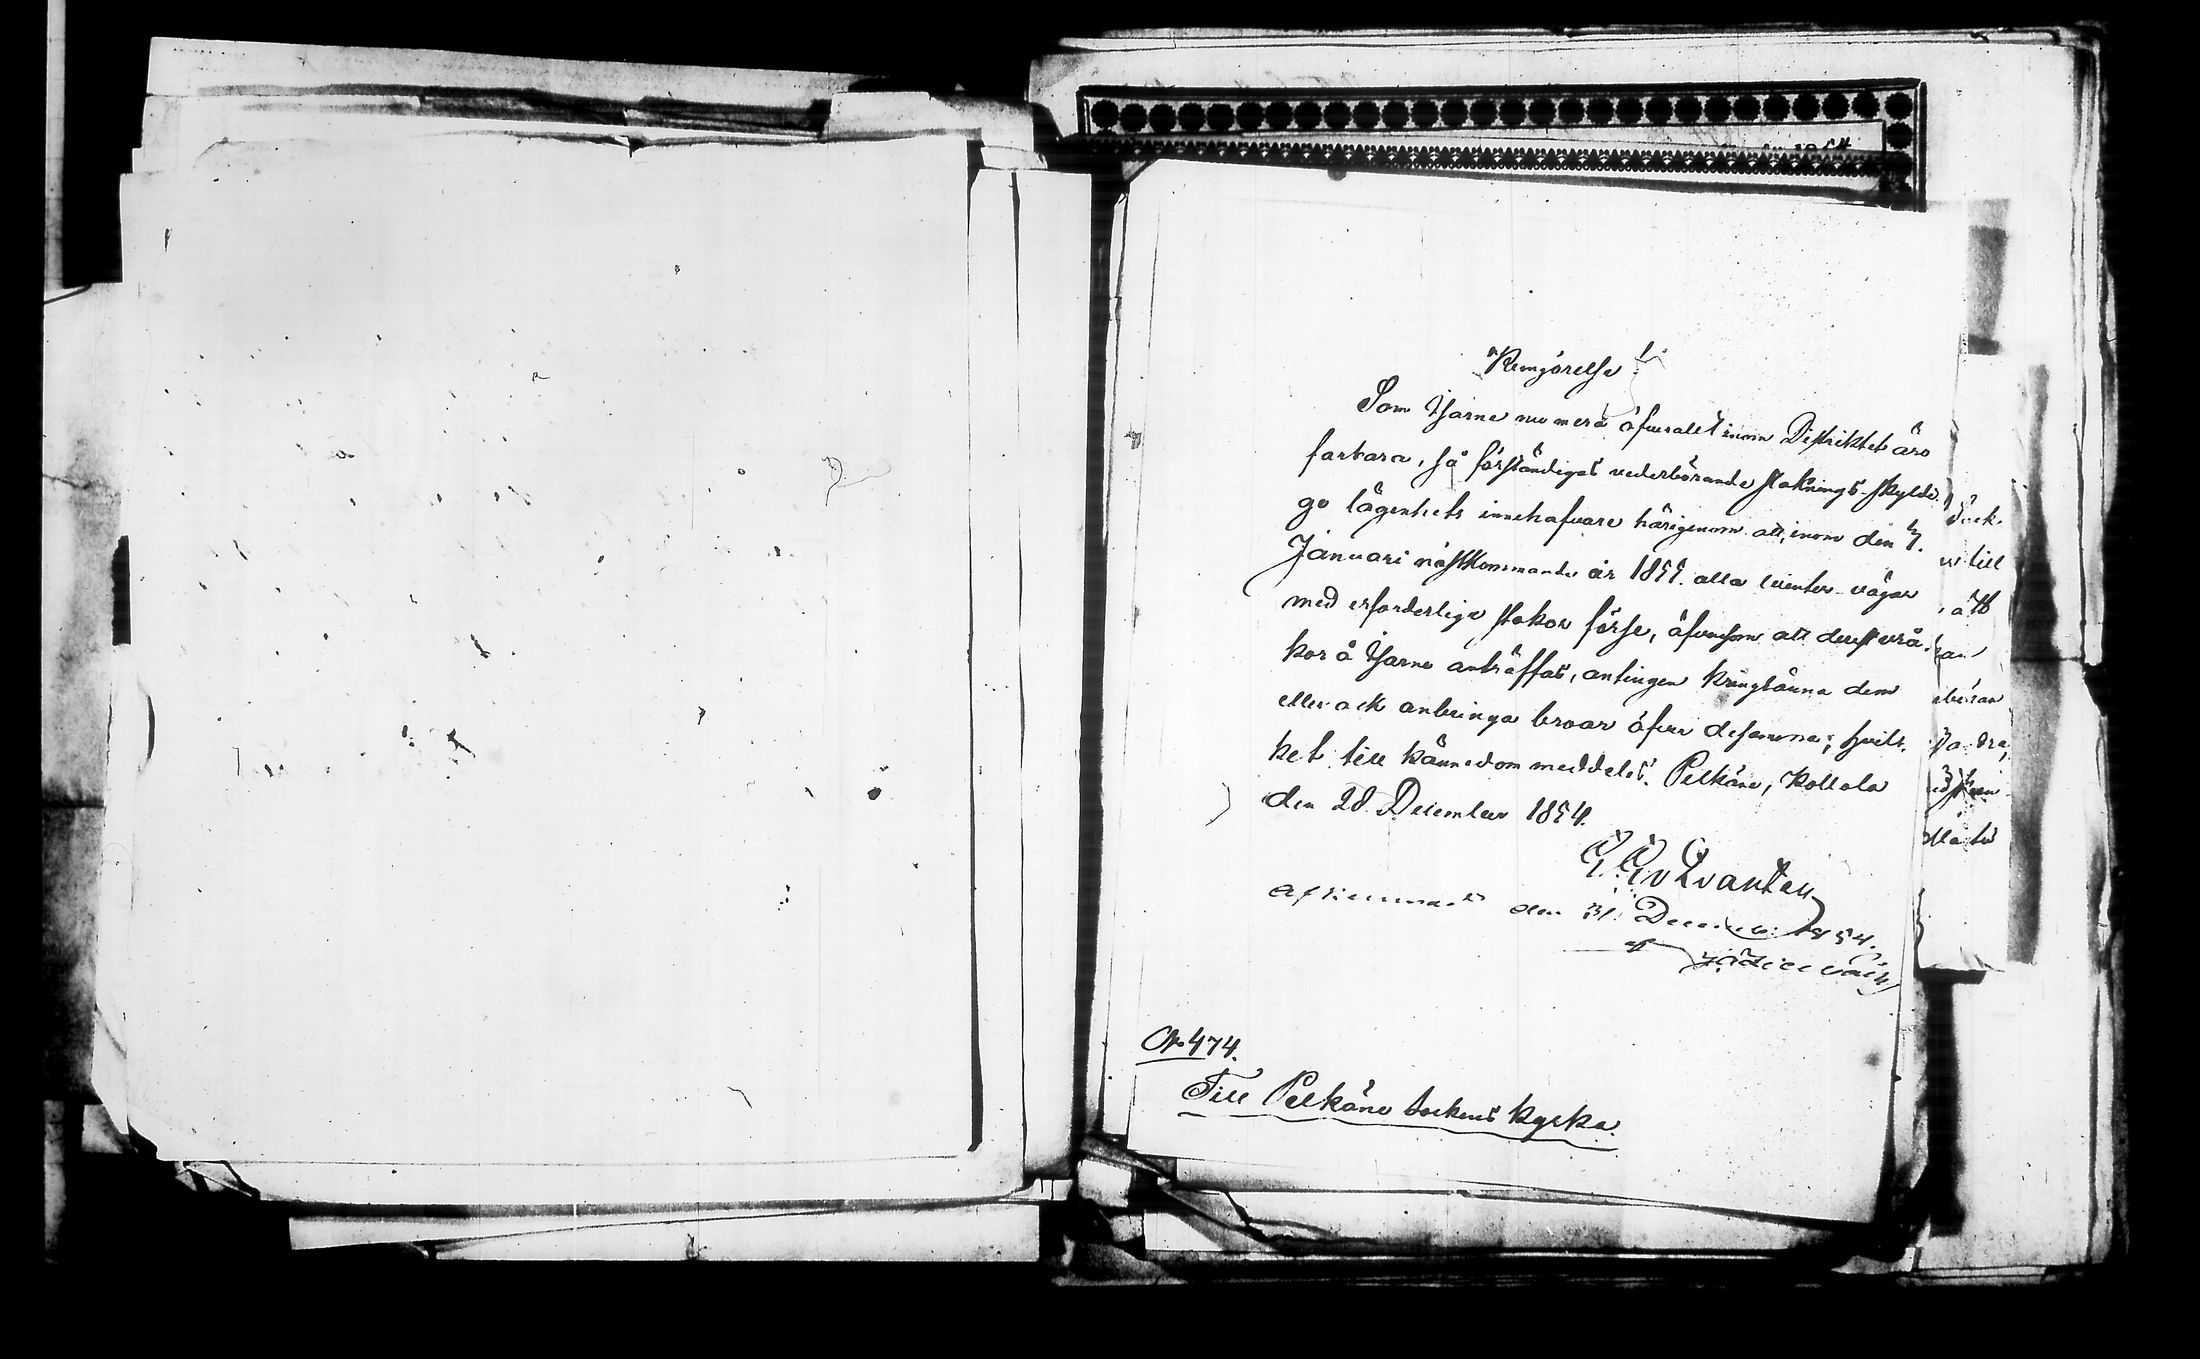 Kungörelse!
Som Isarne nu mera öfverallt inom Distriktet äro
farbara, så förständigas vederbörande staknings-skyldi-
ge lägenhets innehafvare härigenom att, inom den 7.
Januari nästkommande år 1855. alla vinter-vägar
med erforderliga stakor förse, äfvensom att derest vrå-
kor å Isarne anträffas, antingen kringtänna dem
eller ock anbringa broar öfver desamma; hvil-
ket till kännedom meddelas. Pelkäne, Kollola
den 28 December 1854.
G. G. v Qvanten
Afkunnadt den 31. Decemb: 1854.
af
No 474.
Till Pelkäne Sockens Kyrka.
Sock-
till
att